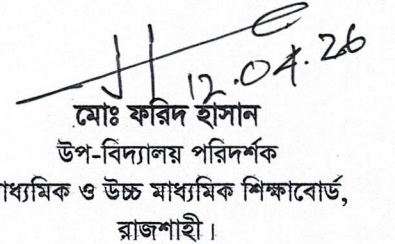 12.04.26
মোঃ ফরিদ হাসান
উপ-বিদ্যালয় পরিদর্শক
াধ্যমিক ও উচ্চ মাধ্যমিক শিক্ষাবোর্ড,
রাজশাহী।